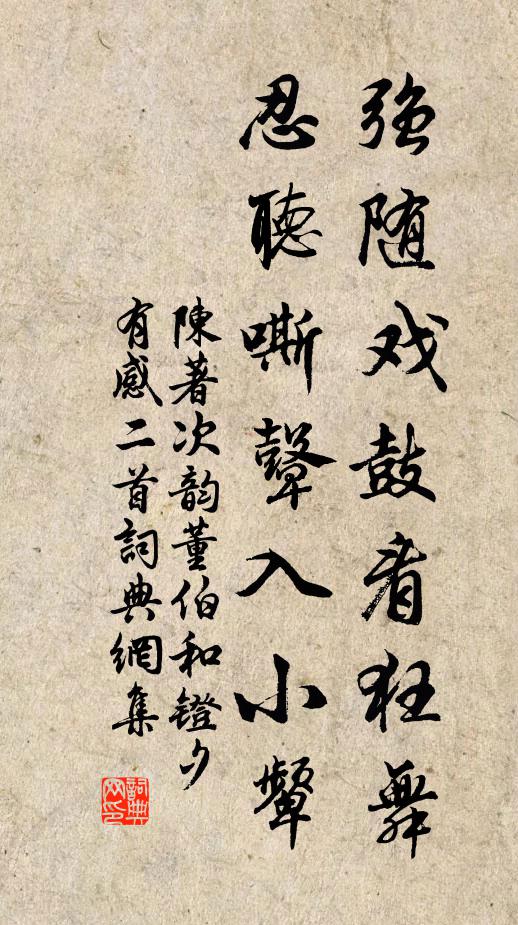 强随戏鼓看狂舞
忍聽嘶鼙入小顰
陳著次韵董伯和鐙夕
有感二首詞典網集
詞典网印